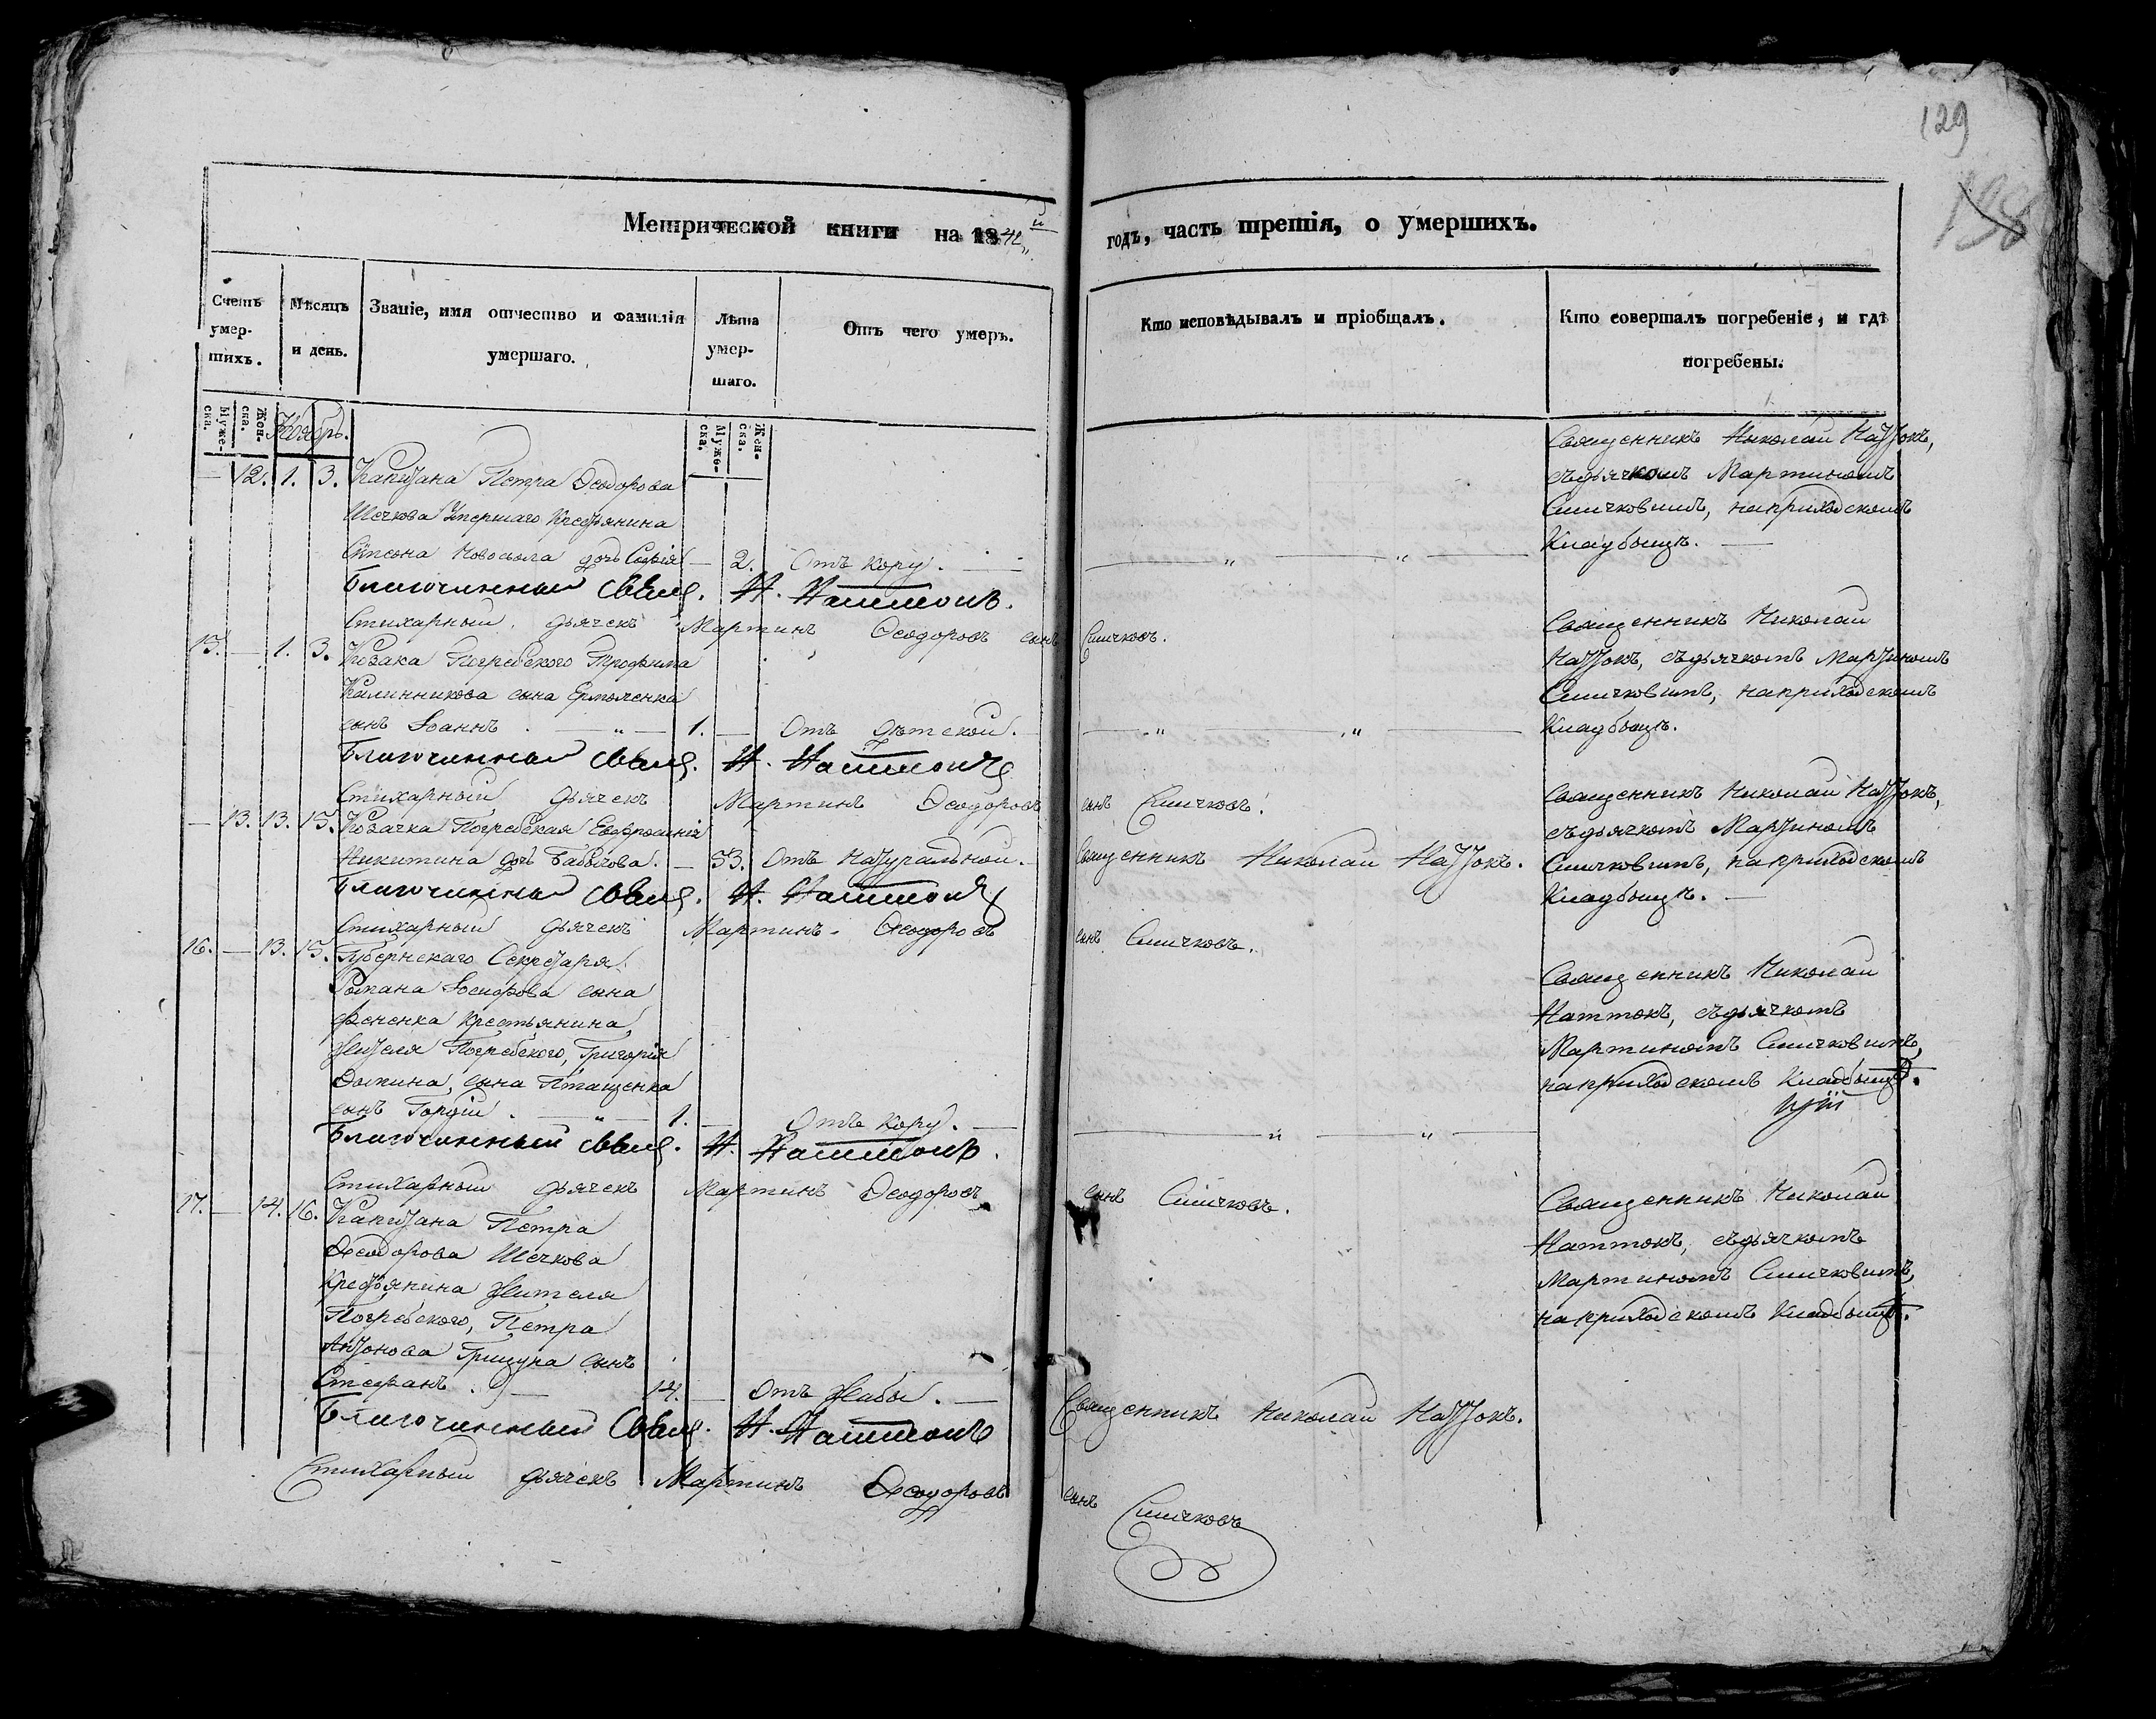 129
138
Метрической книги на 1842й
годъ, часть третія, о умершихъ.
Счетъ умер-шихъ.
Мѣсяцъ и день.
Званіе, имя отчество и фамилія умершаго.
Лѣта умер-шаго.
Отъ чего умеръ.
Кто исповѣдывалъ и пріобщалъ.
Кто совершалъ погребеніе, и гдѣ погребены.
Муже-ска.
Жен-ска.
Ноябрь.
Муже-ска.
Жен-ска.
— 12. 1. 3. Капитана Петра Ѳеодорова
Шечкова умершаго Крестьянина
дочь Софія — 2. Отъ кору. —
Священникъ Николай Наттокъ,
съ дьячкомъ Мартиномъ
Симчковимъ, на приходскомъ
Кладбищѣ. —
Благочинный Свящ. Н. Наттокъ.
Стихарный дьячекъ Мартинъ Ѳеодоровъ сынъ Симчковъ.
15. — 1. 3. Козака Погребского Трофима
Калинникова сына Ермоленка
сынъ Іоаннъ. — 1. — Отъ дѣтской.
Священникъ Николай
Наттокъ, съ дьячкомъ Мартиномъ
Симчковимъ, на приходскомъ
Кладбищѣ.
Благочинный Свящ. Н. Наттокъ
Стихарный дьячекъ Мартинъ Ѳеодоровъ сынъ Симчковъ.
— 13. 13. 15. Козачка Погребская Евфросинія
Никитина дочь Бабичова. — 53. Отъ натуральной. Священникъ Николай Наттокъ.
Священникъ Николай Наттокъ,
съ дьячкомъ Мартиномъ
Симчковимъ, на приходскомъ
Кладбищѣ. —
Благочинный Свящ. Н. Наттокъ
Стихарный дьячекъ Мартинъ Ѳеодоровъ сынъ Симчковъ.
16. — 13. 15. Губернскаго Секретаря
Романа Іосифова сына
Фененка Крестьянина,
Жителя Погребского, Григорія
Домина, сына Пташенка
сынъ Гордій. — 1. — Отъ кору. —
Священникъ Николай
Наттокъ, съ дьячкомъ
Мартиномъ Симчковимъ,
на приходскомъ Кладбищѣ.
Благочинный Свящ. Н. Наттокъ.
Стихарный дьячекъ Мартинъ Ѳеодоровъ сынъ Симчковъ.
17. — 14. 16. Капитана Петра
Ѳеодорова Шечкова
Крестьянина Жителя
Погребского, Петра
Антонова Грицуна сынъ
Стефанъ. — 14. — Отъ Жабы. — Священникъ Николай Наттокъ.
Священникъ Николай
Наттокъ, съ дьячкомъ
Мартиномъ Симчковимъ,
на приходскомъ Кладбищѣ.
Благочинный Свящ. Н. Наттокъ
Стихарный дьячекъ Мартинъ Ѳеодоровъ сынъ Симчковъ